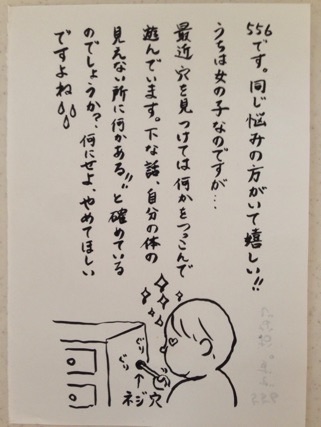 556です。同じ悩みの方がいて嬉しい!!
うちは女の子なのですが…
最近穴を見つけては何かをつっこんで
遊んでいます。下な話、自分の体の
見えない所に何かある!!と確めている
のでしょうか?、何にせよ、やめてほしい
ですよね
ぐりぐり
ネジ穴